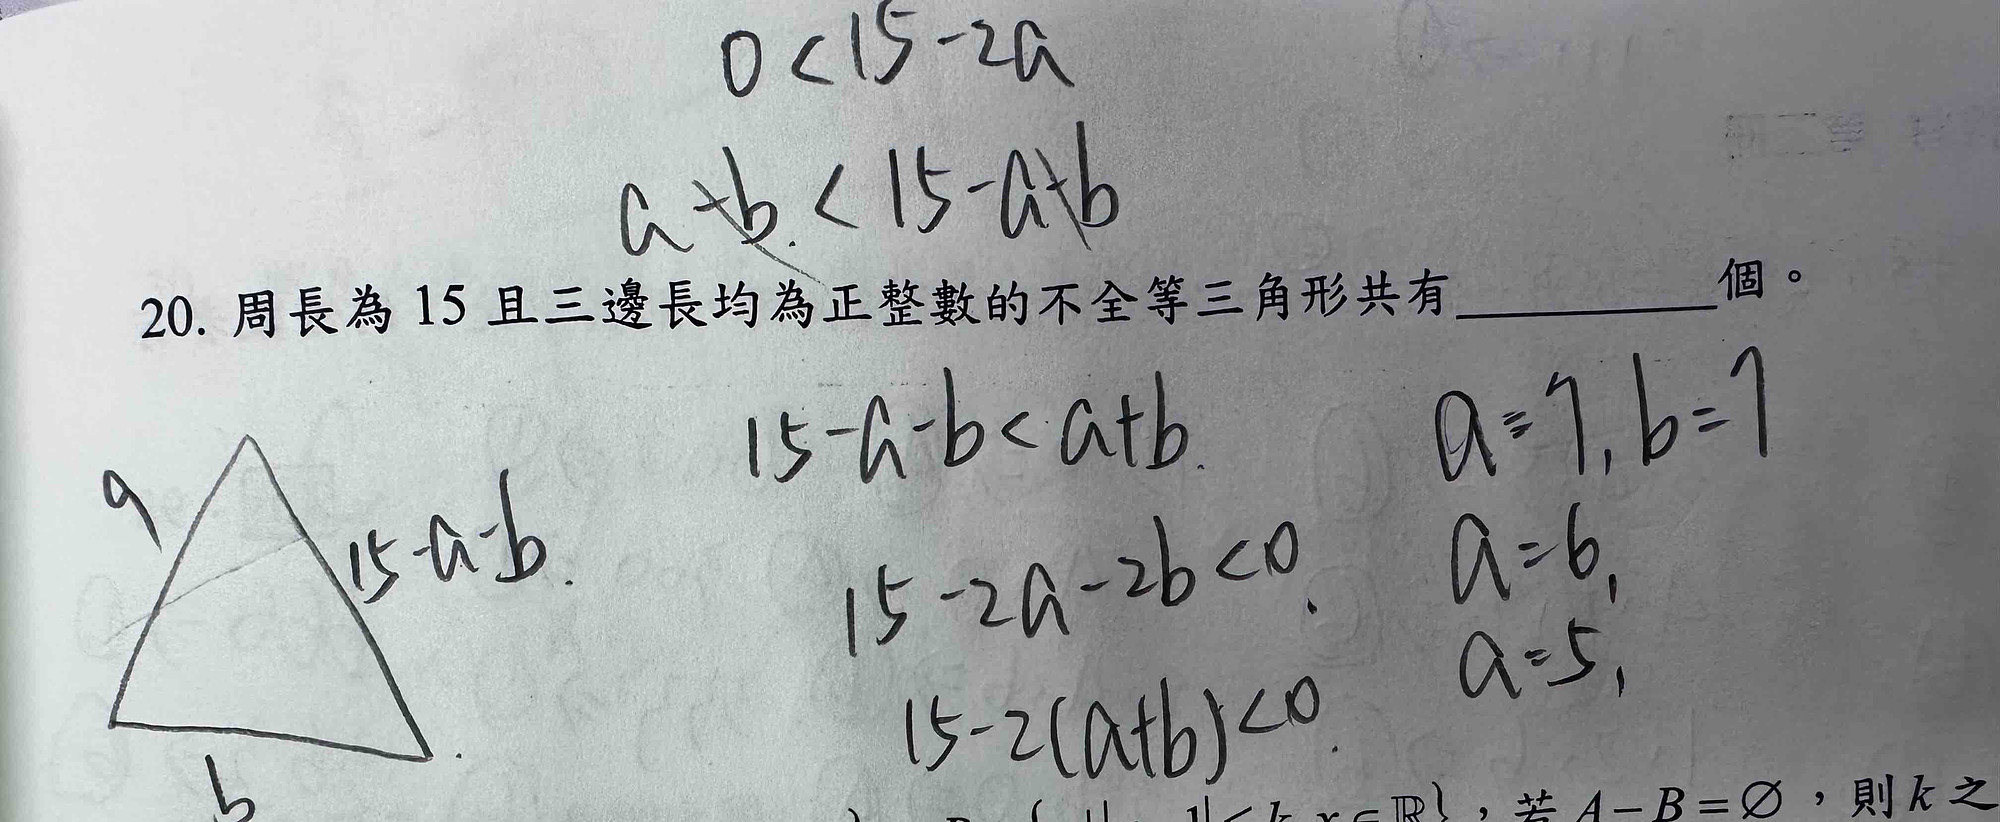 0<15-2a
a+b.<15-a+b
20. 周長為 15 且三邊長均為正整數的不全等三角形共有__________個。
15-a-b<a+b.
a=7,b=7
a
15-a-b.
15-2a-2b<0.
a=6,
a=5,
15-2(a+b)<0.
b
, 若 A-B=∅,則 k 之